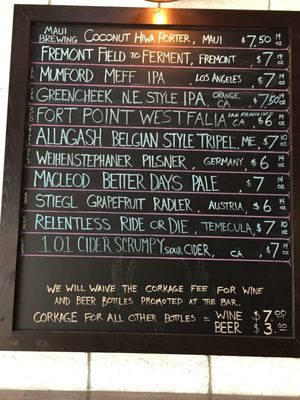 MAUI BREWING COCONUT HIWA PORTER, MAUI $7.50 14 OZ
FREMONT FIELD TO FERMENT, FREMONT $7 14 OZ
MUMFORD MEFF IPA, LOS ANGELES $7 14 OZ
GREENCHEEK N.E. STYLE IPA. ORANGE, CA $7.50 14 OZ
FORT POINT WESTFALIA SAN FRANCISCO CA $6 14 OZ
ALLAGASH BELGIAN STYLE TRIPEL, ME. $7 10 OZ
WEIHENSTEPHANER PILSNER, GERMANY $6 14 OZ
MACLEOD BETTER DAYS PALE $7 14 OZ
STIEGL GRAPEFRUIT RADLER, AUSTRIA $6 14 OZ
RELENTLESS RIDE OR DIE, TEMECULA, $7 10 OZ
101 CIDER SCRUMPY SOUR CIDER, CA $7 14 OZ
WE WILL WAIVE THE CORKAGE FEE FOR WINE
AND BEER BOTTLES PROMOTED AT THE BAR.
CORKAGE FOR ALL OTHER BOTTLES = WINE $7.00
BEER $3.00